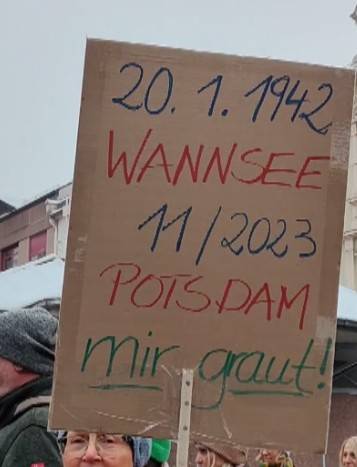 20. 1. 1942
WANNSEE
11/2023
POTSDAM
mir graut!